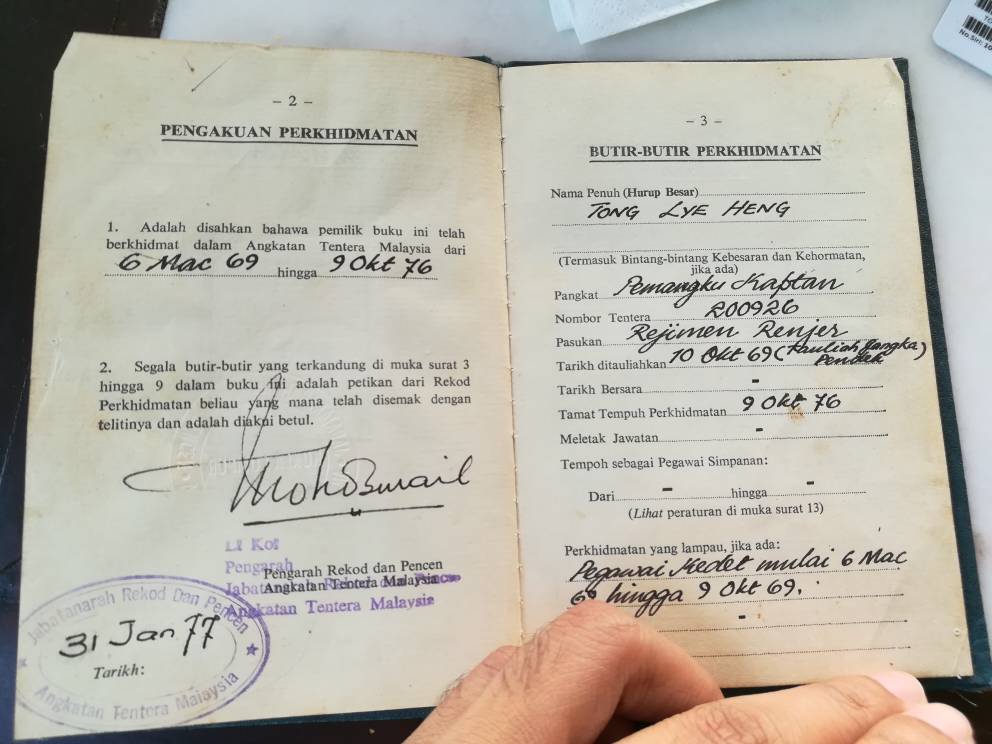 - 2 -
PENGAKUAN PERKHIDMATAN
1. Adalah disahkan bahawa pemilik buku ini telah
berkhidmat dalam Angkatan Tentera Malaysia dari
6 Mac 69 hingga 9 Okt 76
2. Segala butir-butir yang terkandung di muka surat 3
hingga 9 dalam buku ini adalah petikan dari Rekod
Perkhidmatan beliau yang mana telah disemak dengan
telitinya dan adalah diakui betul.
Lt Kol
Pengarah
Pengarah Rekod dan Pencen
Angkatan Tentera Malaysia
Angkatan Tentera Malaysia
Jabatanarah Rekod Dan Pencen
31 Jan 77
Tarikh:
Angkatan Tentera Malaysia
- 3 -
BUTIR-BUTIR PERKHIDMATAN
Nama Penuh (Hurup Besar)
TONG LYE HENG
(Termasuk Bintang-bintang Kebesaran dan Kehormatan,
jika ada)
Pangkat Pemangku Kaptan
Nombor Tentera 200926
Pasukan Rejimen Renjer
Tarikh ditauliahkan 10 Okt 69 (Tauliah Jangka
Pendek)
Tarikh Bersara -
Tamat Tempuh Perkhidmatan 9 Okt 76
Meletak Jawatan -
Tempoh sebagai Pegawai Simpanan:
Dari - hingga -
(Lihat peraturan di muka surat 13)
Perkhidmatan yang lampau, jika ada:
Pegawai Kedet mulai 6 Mac
69 hingga 9 Okt 69.
-
No.Siri: